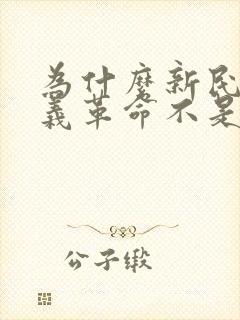 為什麼新民
義革命不是
公子缎